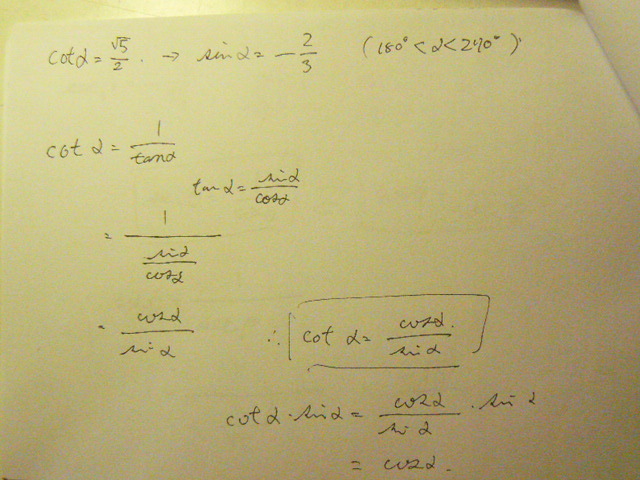 cot α = √5/2 . → sin α = - 2/3 (180° < α < 270°)
cot α = 1/tan α
tan α = sin α/cos α
= 1/(sin α/cos α)
= cos α/sin α ∴ cot α = cos α/sin α
cot α · sin α = cos α/sin α · sin α
= cos α.